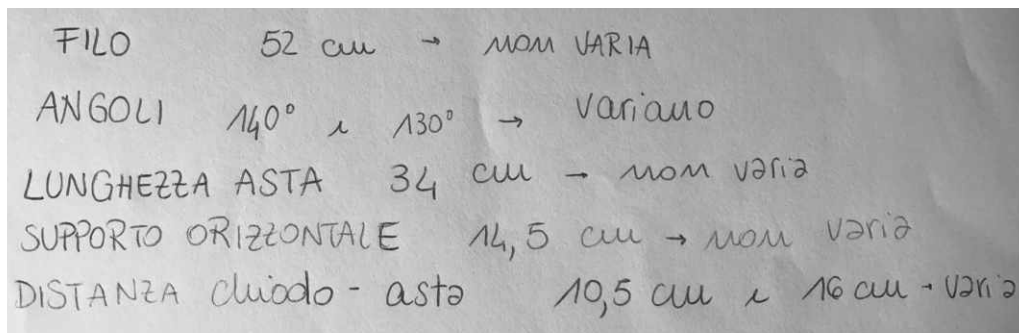 FILO 52 cm → non VARIA
ANGOLI 140° e 130° → variano
LUNGHEZZA ASTA 34 cm → non varia
SUPPORTO ORIZZONTALE 14,5 cm → non varia
DISTANZA chiodo - asta 10,5 cm e 16 cm → varia